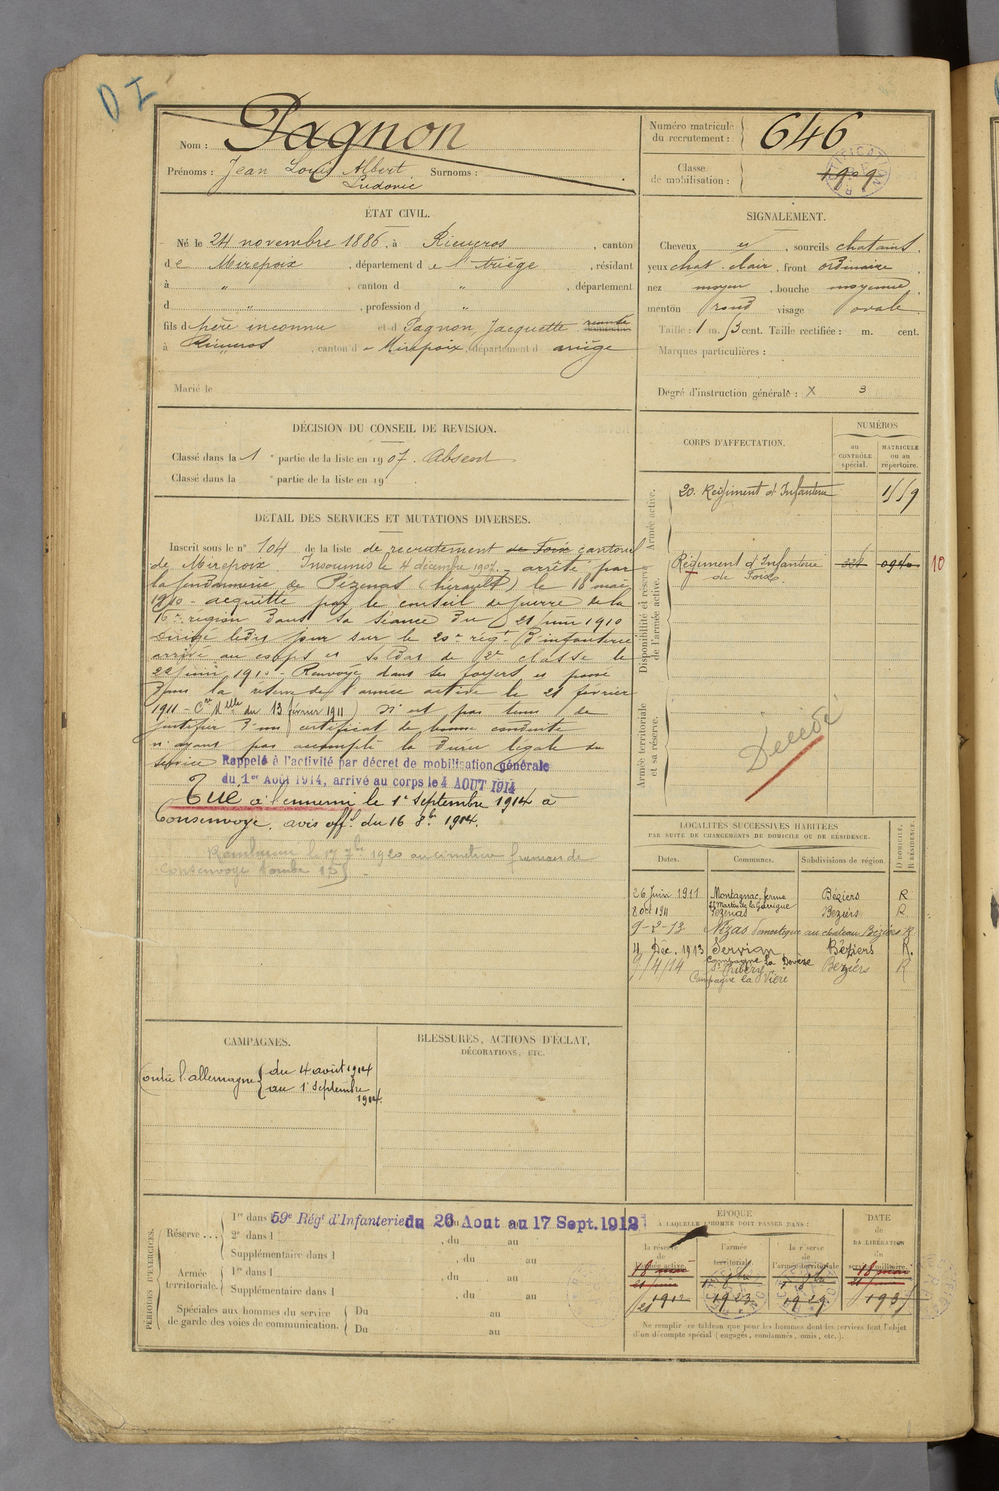 D I
Nom : Pagnon
Prénoms : Jean Louis Albert Surnoms :
Ludovic
Numéro matricule
du recrutement : 646
Classe
de mobilisation : 1909
ÉTAT CIVIL.
Né le 24 novembre 1886, à Rieucros, canton
de Mirepoix, département de l'Ariège, résidant
à " , canton d " , département
d " , profession d "
fils de père inconnu et d Pagnon Jacquette
à Rieucros, canton de Mirepoix, département d ariège
Marié le
SIGNALEMENT.
Cheveux et , sourcils chatains.
yeux chat. clair, front ordinaire
nez moyen, bouche moyenne
menton rond visage ovale
Taille : 1 m. 53 cent. Taille rectifiée : m. cent.
Marques particulières :
Degré d'instruction générale : X 3
DÉCISION DU CONSEIL DE REVISION.
Classé dans la 1e partie de la liste en 1907. Absent
Classé dans la e partie de la liste en 19
DÉTAIL DES SERVICES ET MUTATIONS DIVERSES.
Inscrit sous le n° 104 de la liste de recrutement de Foix canton
de Mirepoix. Insoumis le 4 décembre 1907. arrêté par
la gendarmerie de Pézenas (hérault) le 18 mai
1910 - acquitté par le conseil de guerre de la
16e région dans sa séance du 21 juin 1910
Dirigé ledit jour sur le 20e régt d'infanterie
arrivé au corps et soldat de 2e classe le
22 juin 1910. Renvoyé dans ses foyers et passé
dans la réserve de l'armée active le 21 février
1911 - Cre Mlle du 13 février 1911) N'est pas tenu de
justifier d'un certificat de bonne conduite
n'ayant pas accompli la durée légale du
service Rappelé à l'activité par décret de mobilisation générale
du 1er Août 1914, arrivé au corps le 4 AOUT 1914
Tué à l'ennemi le 1er Septembre 1914 à
Consenvoye, avis offl du 16 8bre 1914.
le 17 7bre 1920 au cimetière français de
Consenvoye tombe 155
CORPS D'AFFECTATION.
NUMÉROS
au
CONTRÔLE
spécial.
MATRICULE
ou au
répertoire.
Armée active.
20. Régiment d'Infanterie 1559
Disponibilité et réserve
de l'armée active.
Régiment d'Infanterie 10
de Foix.
Armée territoriale
et sa réserve.
Décédé
LOCALITÉS SUCCESSIVES HABITÉES
PAR SUITE DE CHANGEMENTS DE DOMICILE OU DE RÉSIDENCE.
Dates. Communes. Subdivisions de région. D DOMICILE, R RÉSIDENCE.
26 Juin 1911 Montagnac, ferme Béziers R
St Martin de la Garrigue
8 oct 1911 Pézenas Béziers R
9-2-13 Nizas Domestique au chateau Béziers R.
4 Déc. 1913 Servian Béziers R.
Campagne la Devèze
9/4/14 St Thibéry Béziers R
Campagne la Vière
CAMPAGNES.
Contre l'allemagne { du 4 août 1914
au 1er Septembre
1914.
BLESSURES, ACTIONS D'ÉCLAT,
DÉCORATIONS, ETC.
PÉRIODES D'EXERCICES.
Réserve ... 1re dans l 59e Régt d'Infanterie du 26 Aout au 17 Sept. 1912
2e dans l , du au
Supplémentaire dans l , du au
Armée
territoriale. 1re dans l , du au
Supplémentaire dans l , du au
Spéciales aux hommes du service
de garde des voies de communication. Du au
Du au
ÉPOQUE
À LAQUELLE L'HOMME DOIT PASSER DANS :
la réserve
de
l'armée active.
l'armée
territoriale.
la réserve
de
l'armée territoriale.
DATE
de
LA LIBÉRATION
du
service militaire.
18 mai
21 juin
1912
1er 8bre
1923
1er 8bre
1929
18 mai
21 juin
Ne remplir ce tableau que pour les hommes dont les services font l'objet
d'un décompte spécial (engagés, condamnés, omis, etc.).